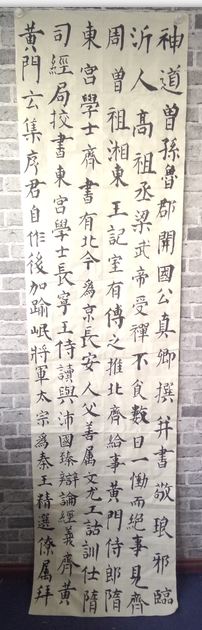 神道曾孫魯郡開國公真卿撰并書敬琅邪臨
沂人高祖丞梁武帝受禪不食數日一慟而絕事見齊
周曾祖湘東王記室有傳之推北齊給事黃門侍郎隋
東宮學士齊書有北今為京長安人父善属文尤工詁訓仕隋
司經局挍書東宮學士長寧王侍讀與沛國臻辯論經義齊黃
黃門玄集序君自作後加踰岷將軍太宗為秦王精選僚属拜